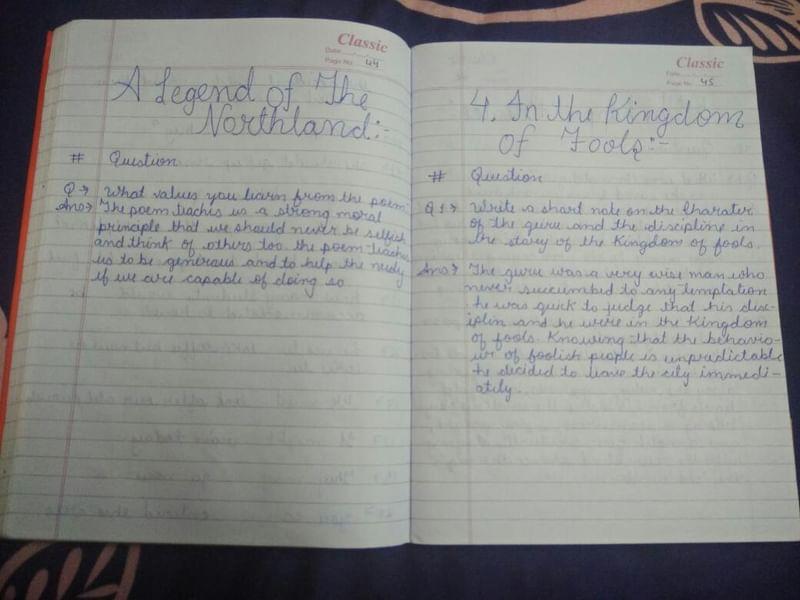 Classic
Date
Page No. 44
A Legend of The
Northland:-
# Question
Q → What values you learn from the poem
Ans → The poem teaches us a strong moral
principle that we should never be selfish
and think of others too the poem teaches
us to be generous and to help the needy
if we are capable of doing so
Classic
Date
Page No. 45
4. In the Kingdom
of Fools:-
# Question
Q 1 → Write a short note on the Charater
of the guru and the discipline in
the story of the Kingdom of fools.
Ans → The guru was a very wise man who
never succumbed to any temptation
he was quick to judge that his disc-
iplin and he were in the Kingdom
of fools. Knowing that the behavio-
ur of foolish people is unpredictable
he decided to leave the city immedi-
ately.